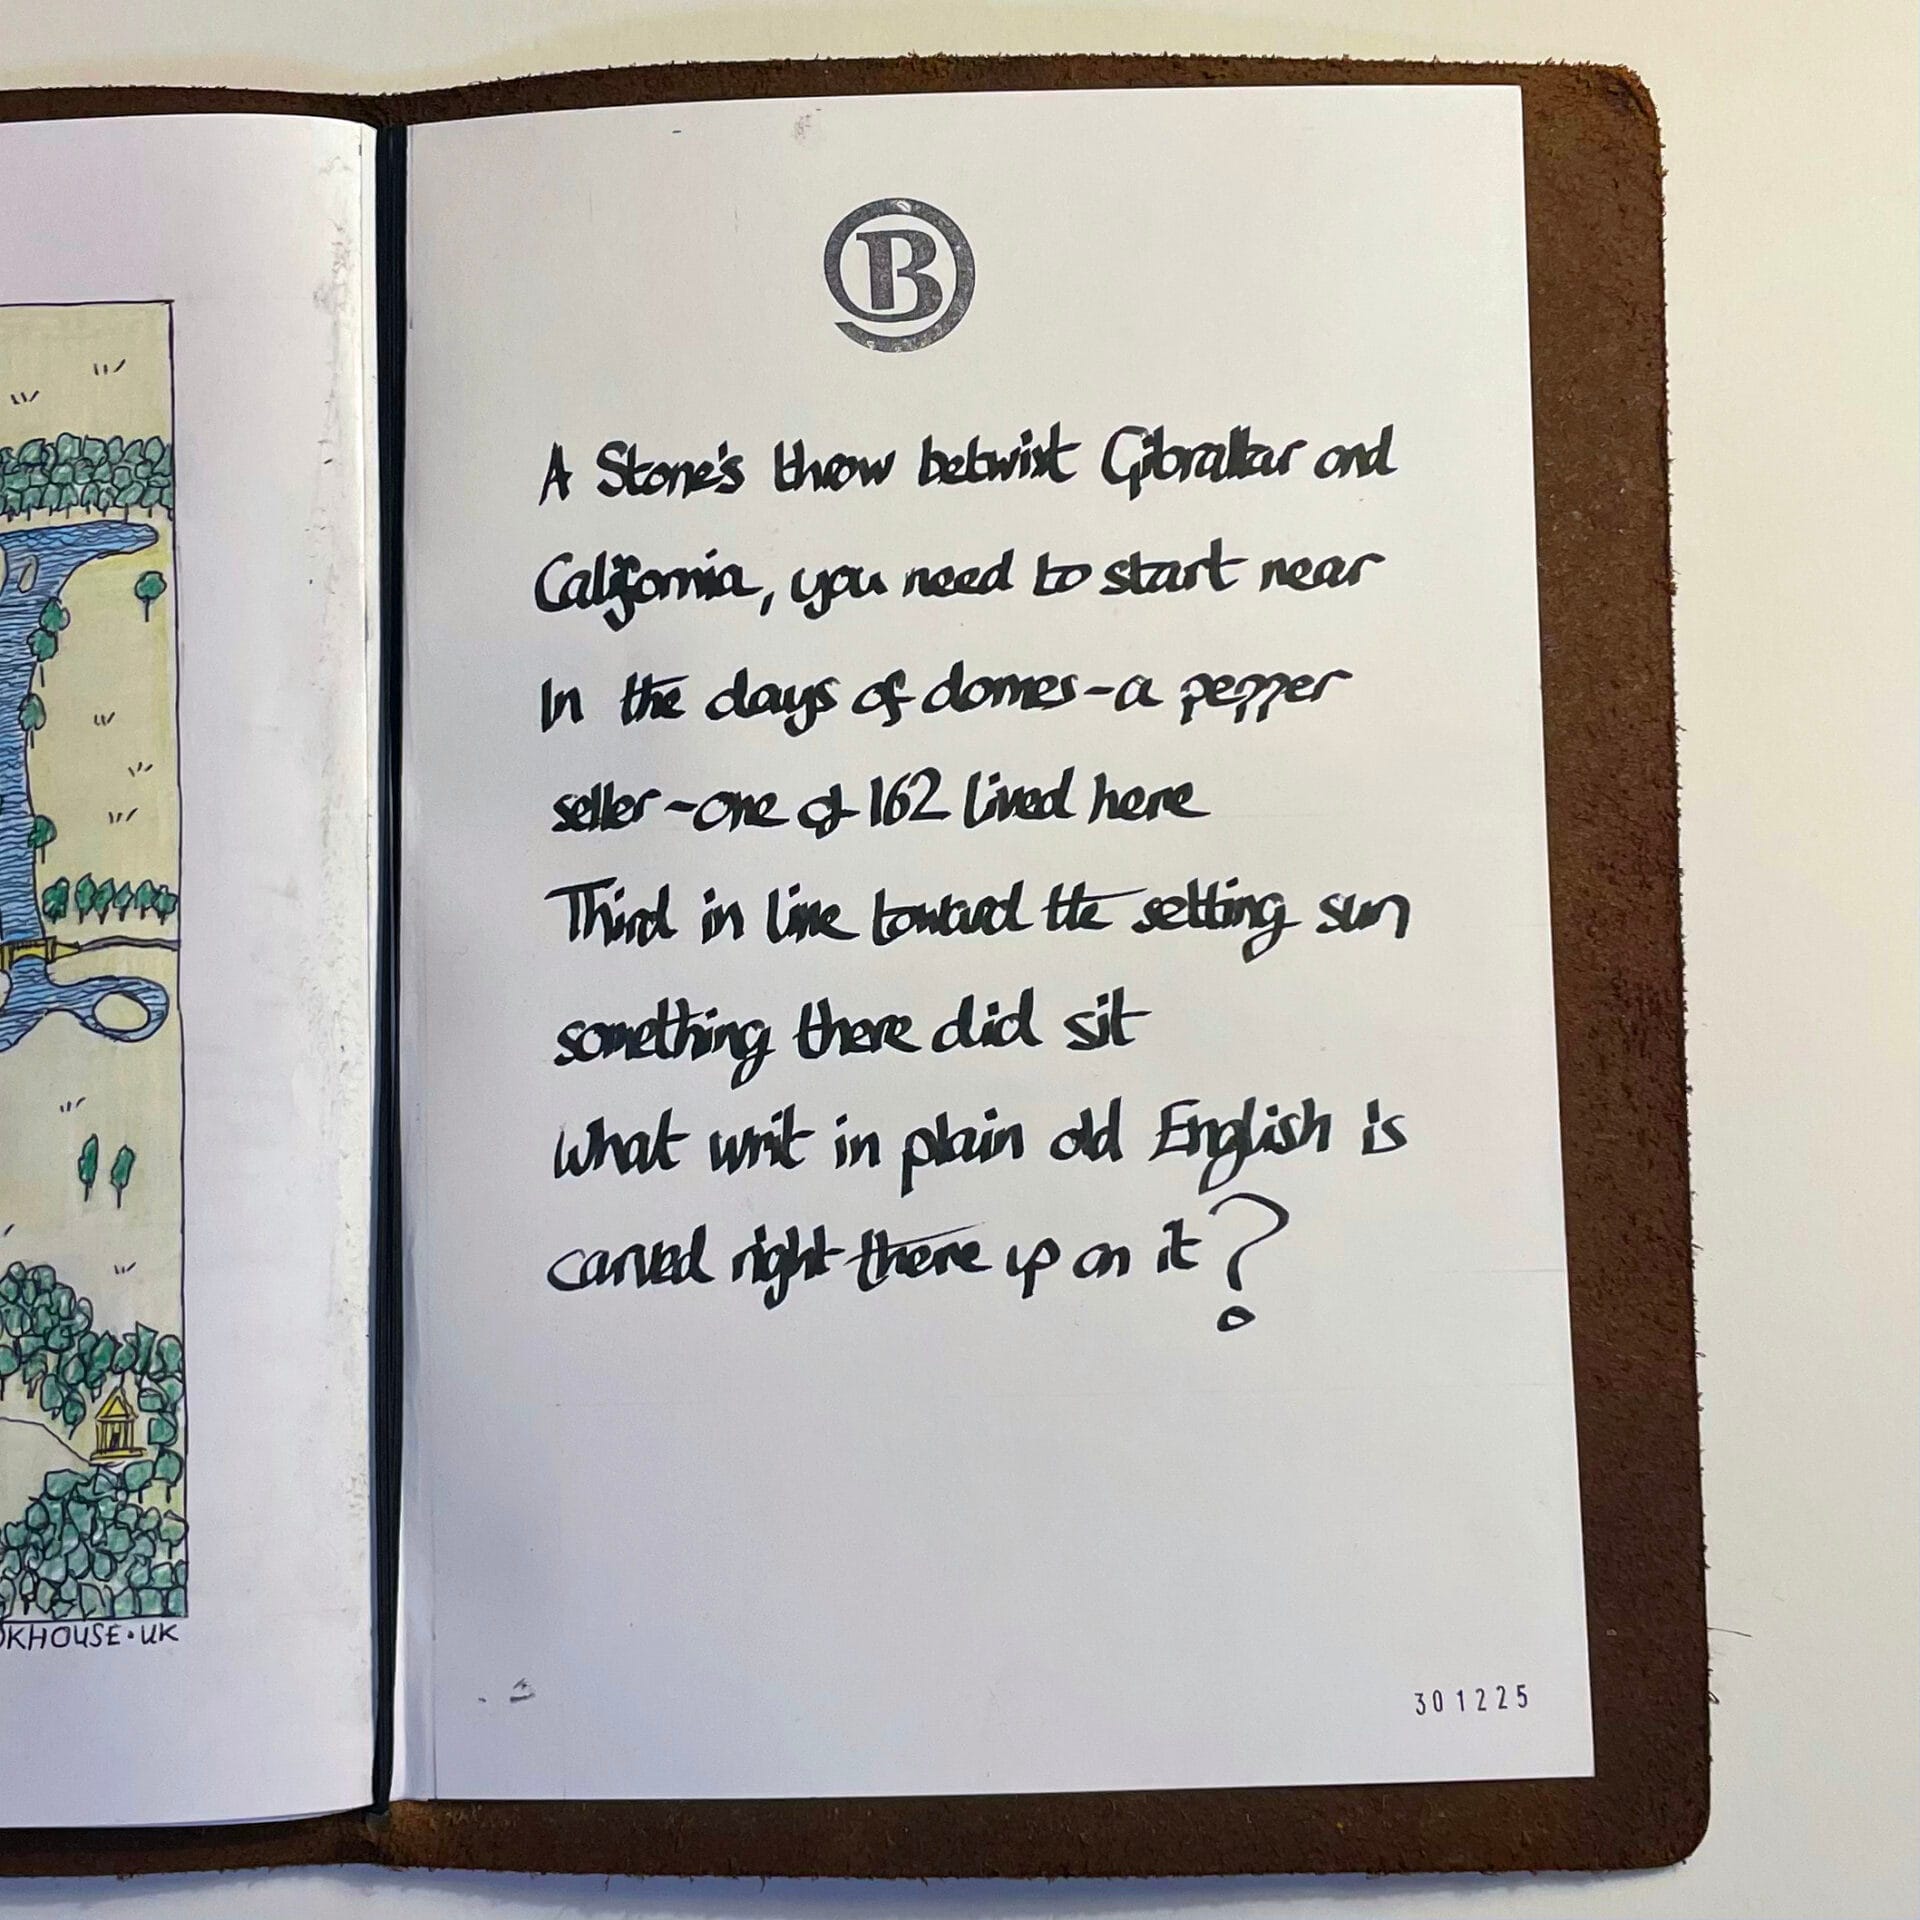 B
A Stone's throw betwixt Gibraltar and
California, you need to start near
In the days of domes-a pepper
seller-one of 162 lived here
Third in line toward the setting sun
something there did sit
What writ in plain old English is
carved right there up on it?
KHOUSE•UK
301225